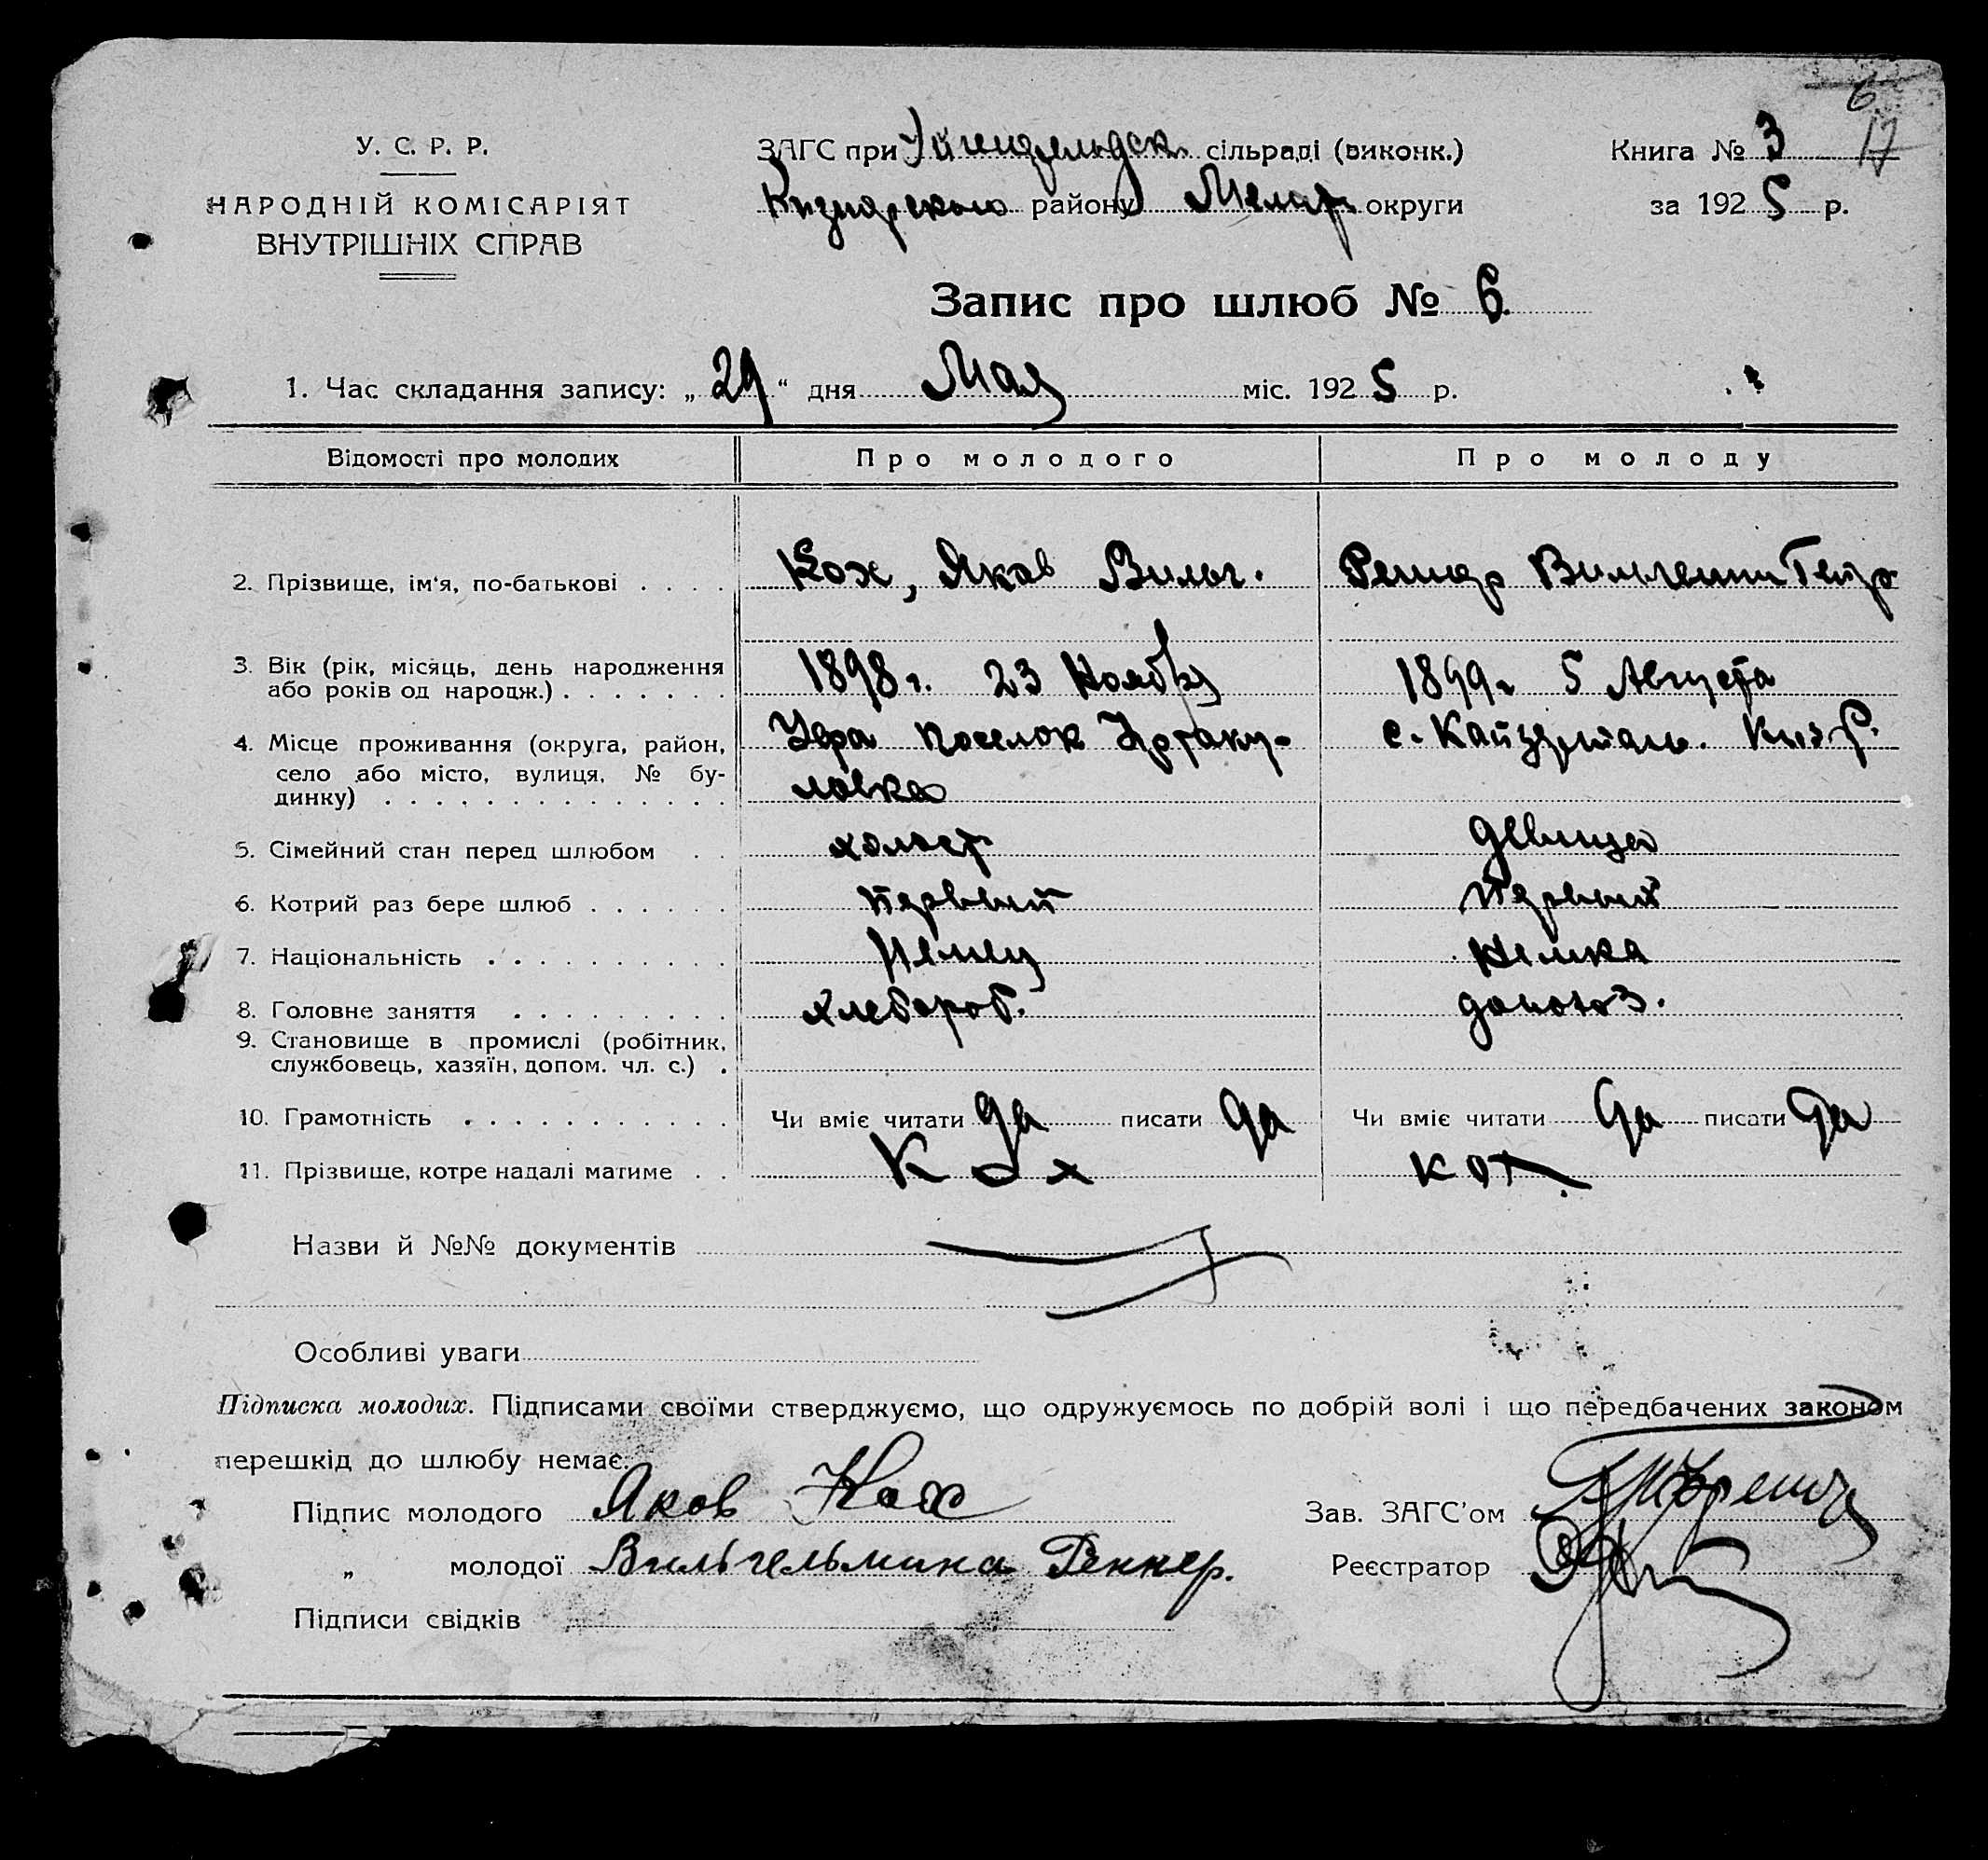 6
17
У. С. Р. Р.
НАРОДНІЙ КОМІСАРІЯТ
ВНУТРІШНІХ СПРАВ
ЗАГС при сільраді (виконк.)
району Мелит. округи
Книга № 3
за 1925 р.
Запис про шлюб № 6
1. Час складання запису: „29“ дня Мая міс. 1925 р.
Відомості про молодих Про молодого Про молоду
2. Прізвище, ім'я, по-батькові . . . . Кох, Яков Вильг. Реннер
3. Вік (рік, місяць, день народження
або років од народж.) . . . . . . . 1898 г. 23 Ноября 1899 г 5 Августа
4. Місце проживання (округа, район,
село або місто, вулиця, № бу-
динку) . . . . . . . . . . . . . . поселок с. Кайзерталь.
5. Сімейний стан перед шлюбом . . холост девица
6. Котрий раз бере шлюб . . . . . . первый первый
7. Національність . . . . . . . . . . Немец Немка
8. Головне заняття . . . . . . . . . хлебороб. домохоз.
9. Становище в промислі (робітник,
службовець, хазяїн, допом. чл. с.) .
10. Грамотність . . . . . . . . . . . Чи вміє читати да писати да Чи вміє читати да писати да
11. Прізвище, котре надалі матиме . . Кох Кох
Назви й №№ документів
Особливі уваги
Підписка молодих. Підписами своїми стверджуємо, що одружуємось по добрій волі і що передбачених законом
перешкід до шлюбу немає.
Підпис молодого Яков Кох Зав. ЗАГС'ом
„ молодої Вильгельмина Реннер. Реєстратор
Підписи свідків